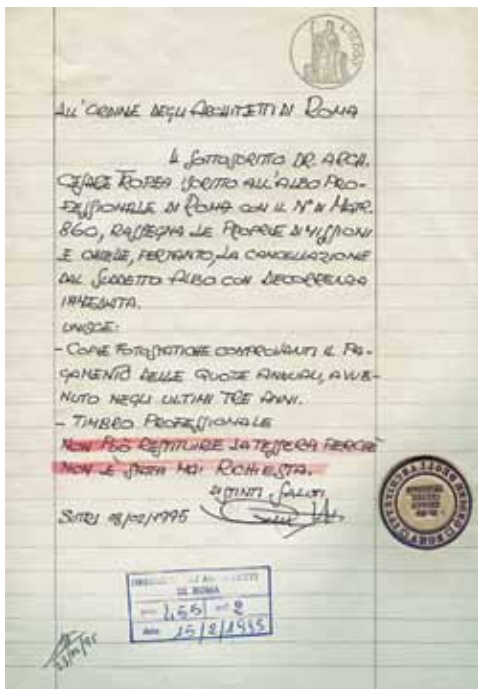 ALL'ORDINE DEGLI ARCHITETTI DI ROMA
IL SOTTOSCRITTO DR. ARCH.
CESARE ROSEA ISCRITTO ALL'ALBO PRO-
FESSIONALE DI ROMA CON IL N° DI MATR.
860, RASSEGNA LE PROPRIE DIMISSIONI
E CHIEDE, PERTANTO, LA CANCELLAZIONE
DAL SUDDETTO ALBO CON DECORRENZA
IMMEDIATA.
UNISCE:
- COPIE FOTOSTATICHE COMPROVANTI IL PA-
GAMENTO DELLE QUOTE ANNUALI, AVVE-
NUTO NEGLI ULTIMI TRE ANNI.
- TIMBRO PROFESSIONALE
NON PUÒ RESTITUIRE LA TESSERA PERCHÈ
NON È STATA MAI RICHIESTA.
DISTINTI SALUTI
SUTRI 08/02/1995
DI ROMA
455 2
15/2/1995